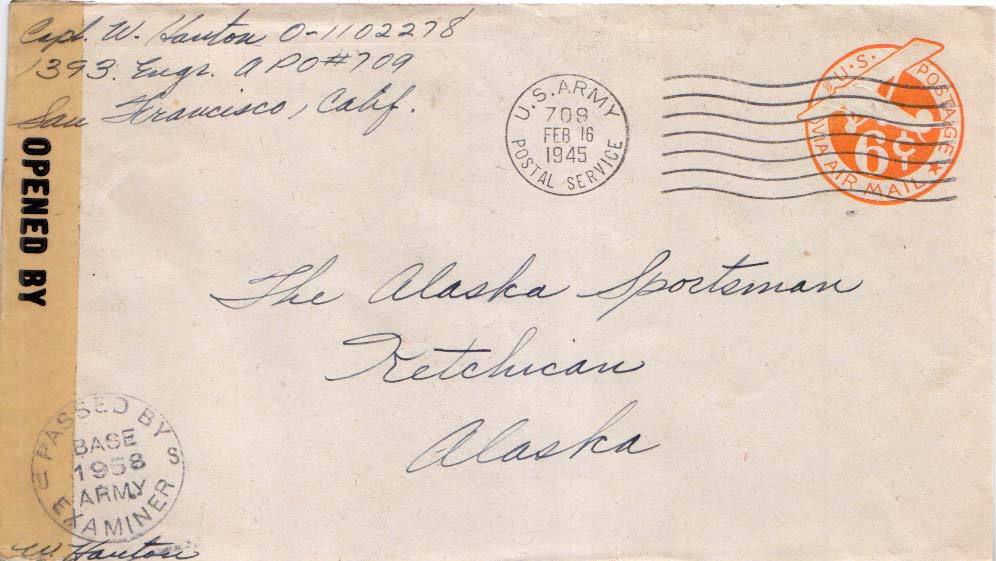 Capt. W. Hanton O-1102278
1393. Engr. APO #709
San Francisco, Calif.
OPENED BY
U.S. ARMY
709
FEB 16
1945
POSTAL SERVICE
U.S. POSTAGE
6¢
VIA AIR MAIL
The Alaska Sportsman
Ketchican
Alaska
PASSED BY
U S
BASE
1958
ARMY
EXAMINER
W. Hanton